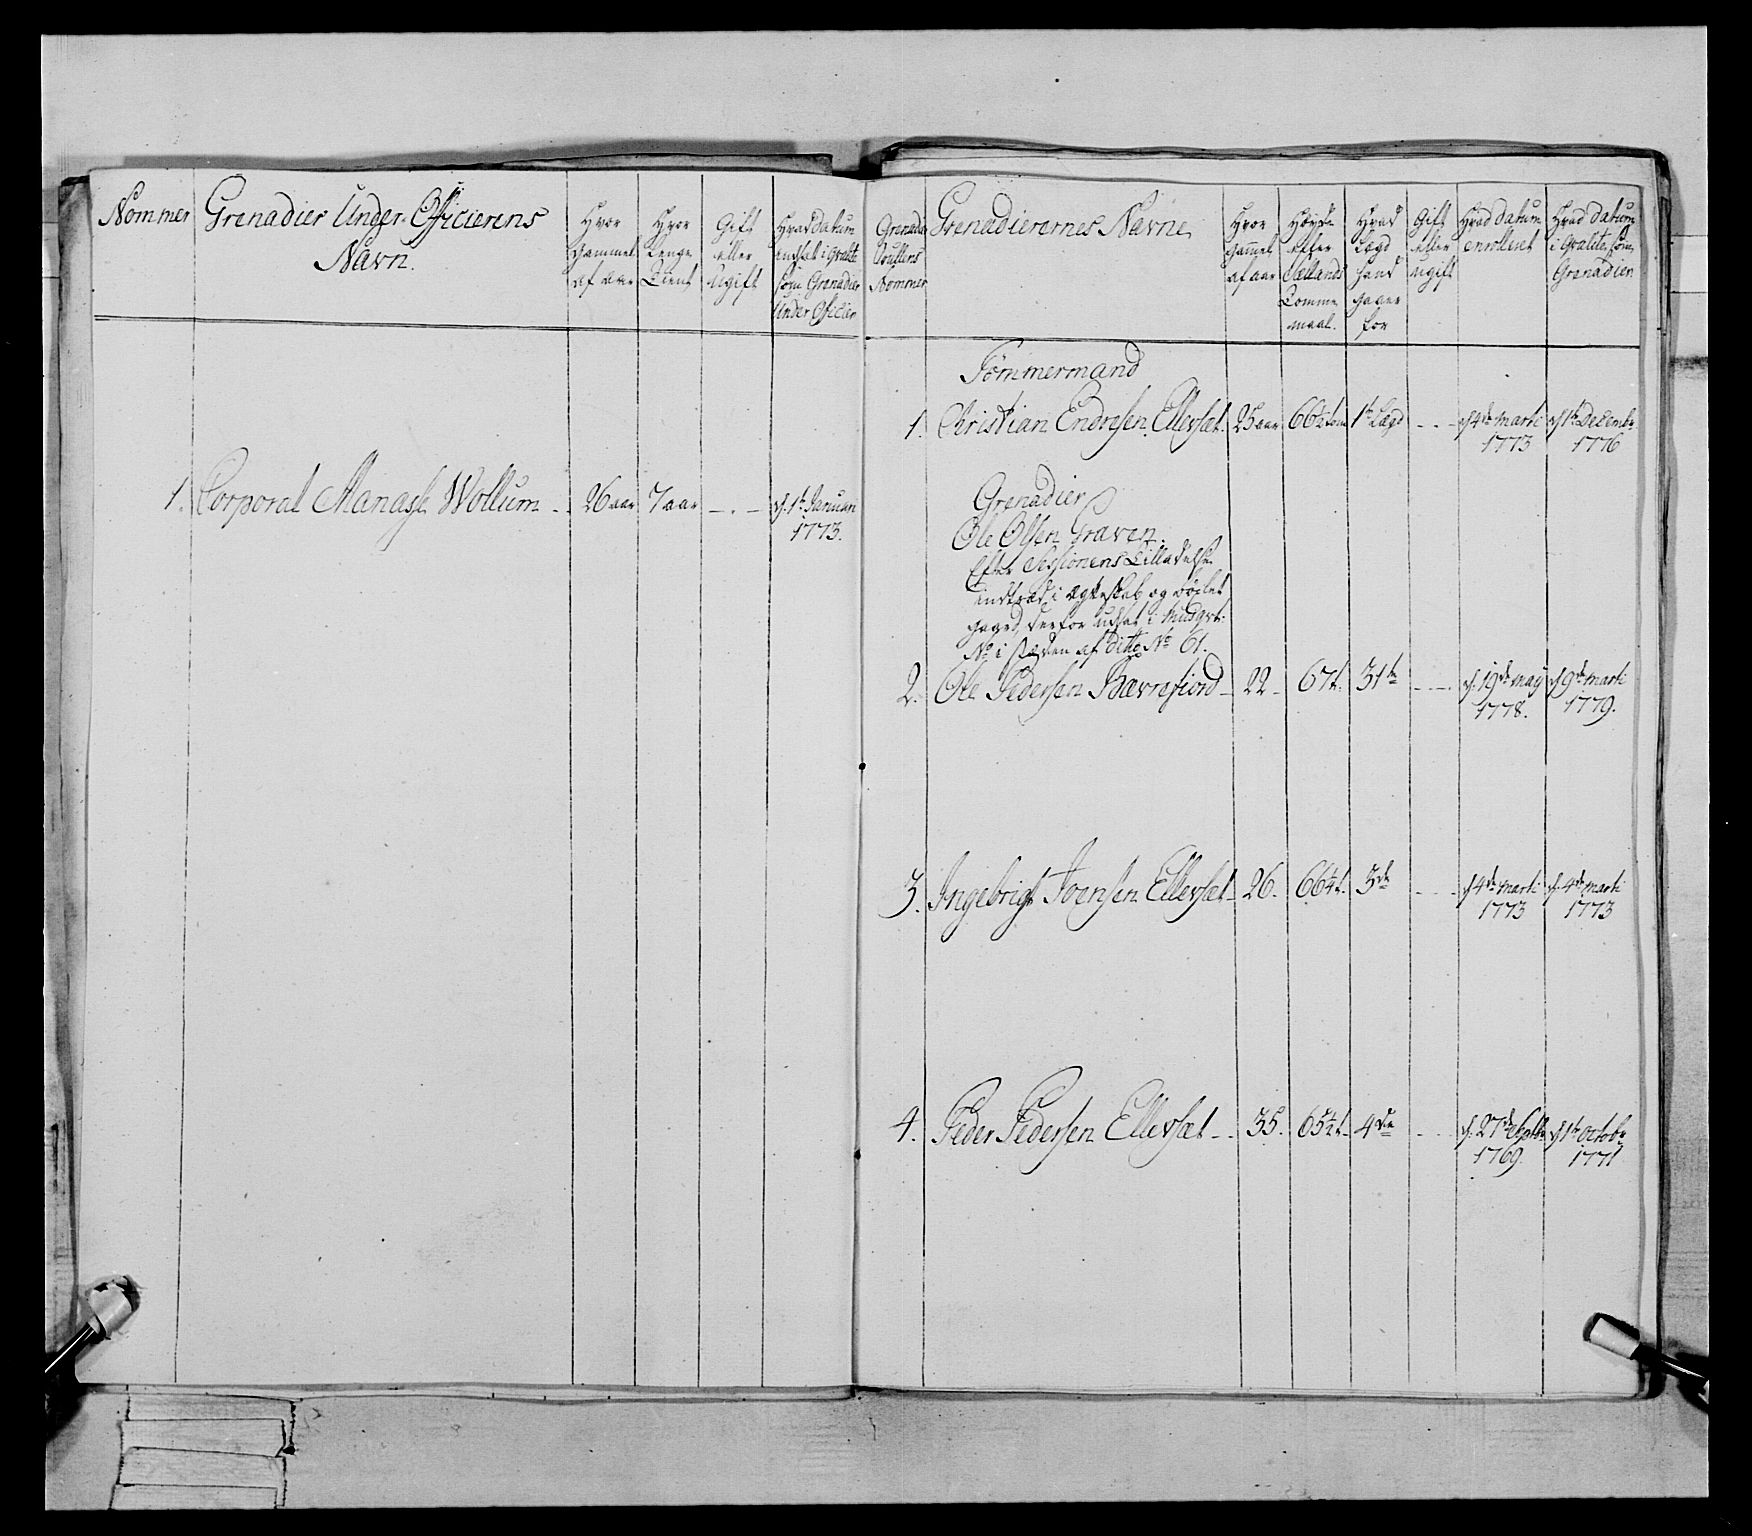 Nommer
Grenadier Under-Officierens
Navn.
Hvor
Gammel
af aar
Hvor
Lenge
Tient
Gift
eller
Ugift
Hvad datum
andsat i qvalite
som Grenadier
Under Officier
1. Corporal Manasse Wollum - 26 aar 7 aar d. 1te Januari
1773.
Grenadier
Rullens
Nommer
Grenadierernes Navne
Hvor
Gammel
af aar
Høyde
efter
Siellands
Tomme
maal.
Hvad
Lægd
hand
gaaer
for
Gift
eller
ugift
Hvad datum
enrollert
Hvad datum
i qvalite som
Grenadier
Tømmermand
1. Christian Endresen Ellevset. 25 aar 66½ tom 1te Lægd d. 4de Marti d. 1te Decembr.
1773 1776
Grenadier
Ole Olsen Graven.
Efter Sessionens Tilladelse
indtraad i Ægteskab og
derfor udsat i Musqvt:
No i stæden af ditto No 61.
2. Ole Pedersen Bævrefiord - 22 - 67 t. 31te d. 19de May d. 9de Marti
1778. 1779.
3. Ingebrigt Joensen Ellevset - 26. 66¼ t. 3de d. 4de Marti d. 4de Marti
1773 1773
4. Peder Pedersen Ellevset - 35. 65½ t. 4de d. 27de d. 1te Octobr
1769. 1771